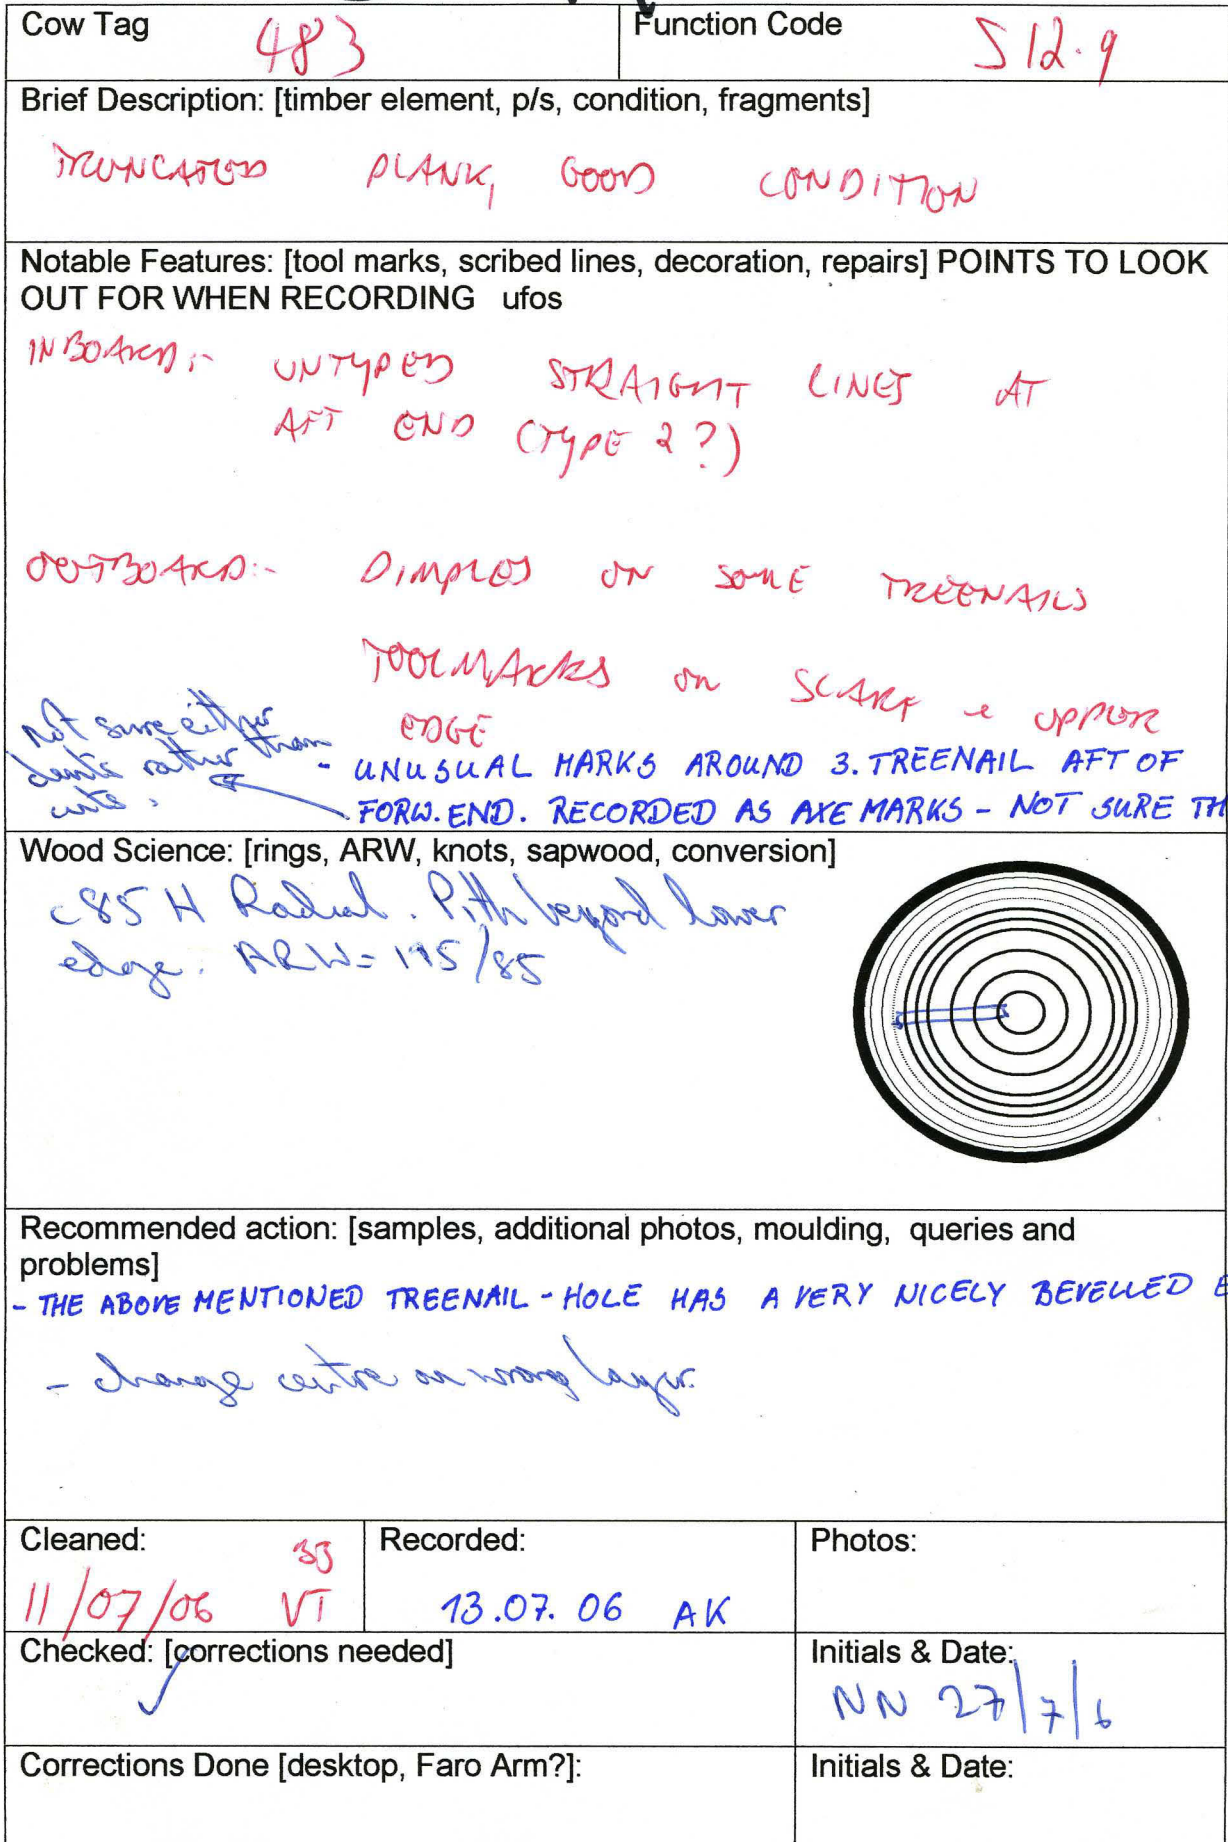 Cow Tag 483
Function Code S12.9
Brief Description: [timber element, p/s, condition, fragments]
TRUNCATED PLANK, GOOD CONDITION
Notable Features: [tool marks, scribed lines, decoration, repairs] POINTS TO LOOK
OUT FOR WHEN RECORDING ufos
INBOARD:- UNTYPED STRAIGHT LINES AT
AFT END (TYPE 2?)
OUTBOARD:- DIMPLES ON SOME TREENAILS
TOOLMARKS ON SCARF & UPPER
EDGE
- UNUSUAL MARKS AROUND 3. TREENAIL AFT OF
FORW. END. RECORDED AS AXE MARKS - NOT SURE TH
Not sure either
dents rather than
cuts.
Wood Science: [rings, ARW, knots, sapwood, conversion]
c85 H Radial. Pith beyond lower
edge. ARW= 195/85
Recommended action: [samples, additional photos, moulding, queries and
problems]
- THE ABOVE MENTIONED TREENAIL-HOLE HAS A VERY NICELY BEVELLED E
- change centre on wrong layer.
Cleaned:
11/07/06 VT
Recorded:
13.07.06 AK
Photos:
Checked: [corrections needed]
✓
Initials & Date:
NN 27/7/6
Corrections Done [desktop, Faro Arm?]:
Initials & Date: